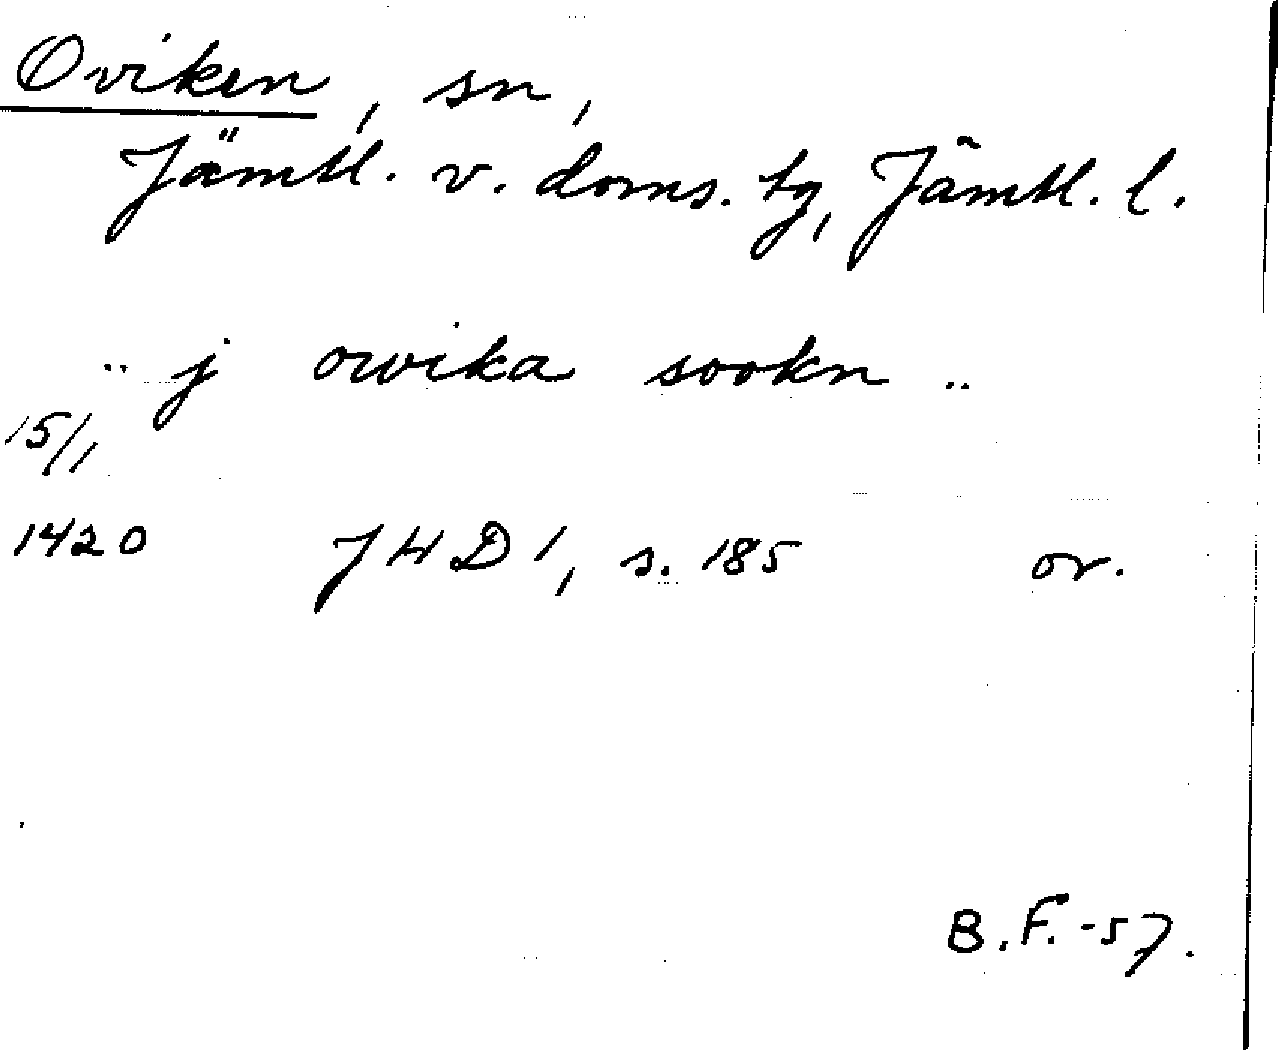 Oviken, sn,
Jämtl. v. doms. tg, Jämtl. l.
.. j owika sookn ..
15/1
1420 JHD 1, s. 185 or.
B.F.-57.